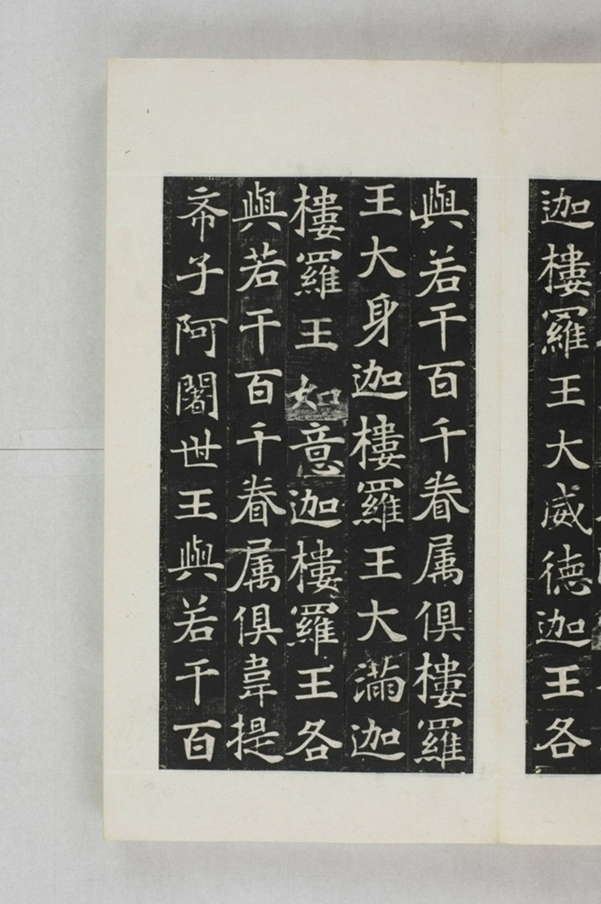 迦樓羅王大威德迦王各
與若干百千眷属俱樓羅
王大身迦樓羅王大滿迦
樓羅王如意迦樓羅王各
與若干百千眷属俱韋提
希子阿闍世王與若干百